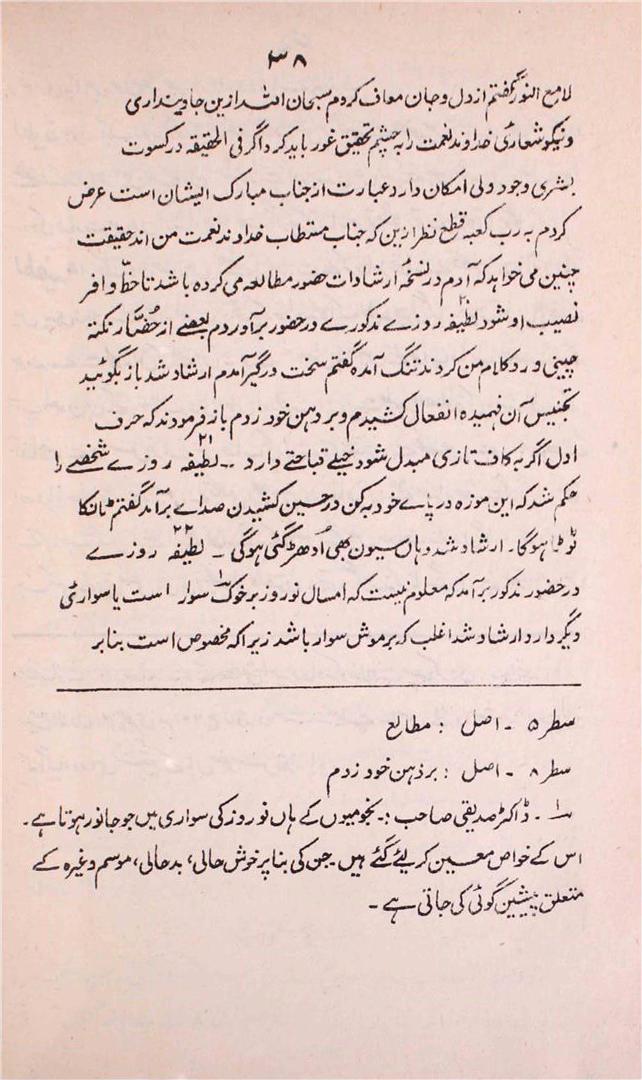 ۳۸
لامع النور گفتم از دل و جان معاف کردم سبحان اللہ ازین جا دینداری
و نیکو شعاری خداوند نعمت را بہ چشم تحقیق غور باید کرد اگر فی الحقیقہ در کسوت
بشری وجود ولی امکان دارد عبارت از جناب مبارک ایشان است عرض
کردم بہ رب کعبہ قطع نظر ازین کہ جناب مستطاب خداوند نعمت من اند حقیقت
چنین می خواہد کہ آدم در نسخۂ ارشادات حضور مطالعہ می کردہ باشد تا حظّ وافر
نصیب او شود لطیفہ ۲۰ روزے مذکورے در حضور بر آوردم بعضے از حضّار نکتہ
چینی و رد کلام من کردند تنگ آمدہ گفتم سخت در گیر آمدم ارشاد شد باز بگوئید
تجنیس آن فہمیدہ انفعال کشیدم و بر دہن خود زدم باز فرمودند کہ حرف
اول اگر بہ کاف تازی مبدل شود خیلے قباحتے دارد ۔۔ لطیفہ ۲۱ روزے شخصے را
حکم شد کہ این موزہ در پاے خود بہ کن در حین کشیدن صداے بر آمد گفتم ٹانکا
ٹوٹا ہوگا۔ ارشاد شد وہاں سیون بھی اُدھڑ گئی ہوگی ۔ لطیفہ ۲۲ روزے
در حضور مذکور بر آمد کہ معلوم نیست کہ امسال نوروز بر خوک۱ سوار است یا سواری
دیگر دارد ارشاد شد اغلب کہ بر موش سوار باشد زیرا کہ مخصوص است بنابر
سطر ۵ ۔ اصل : مطالع
سطر ۸ ۔ اصل : بر ذہن خود زدم
۱ ۔ ڈاکٹر صدیقی صاحب :۔ نجومیوں کے ہاں نوروز کی سواری میں جو جانور ہوتا ہے۔
اس کے خواص معین کر لیئے گئے ہیں ۔ جن کی بنا پر خوش حالی، بد حالی، موسم وغیرہ کے
متعلق پیشین گوئی کی جاتی ہے ۔